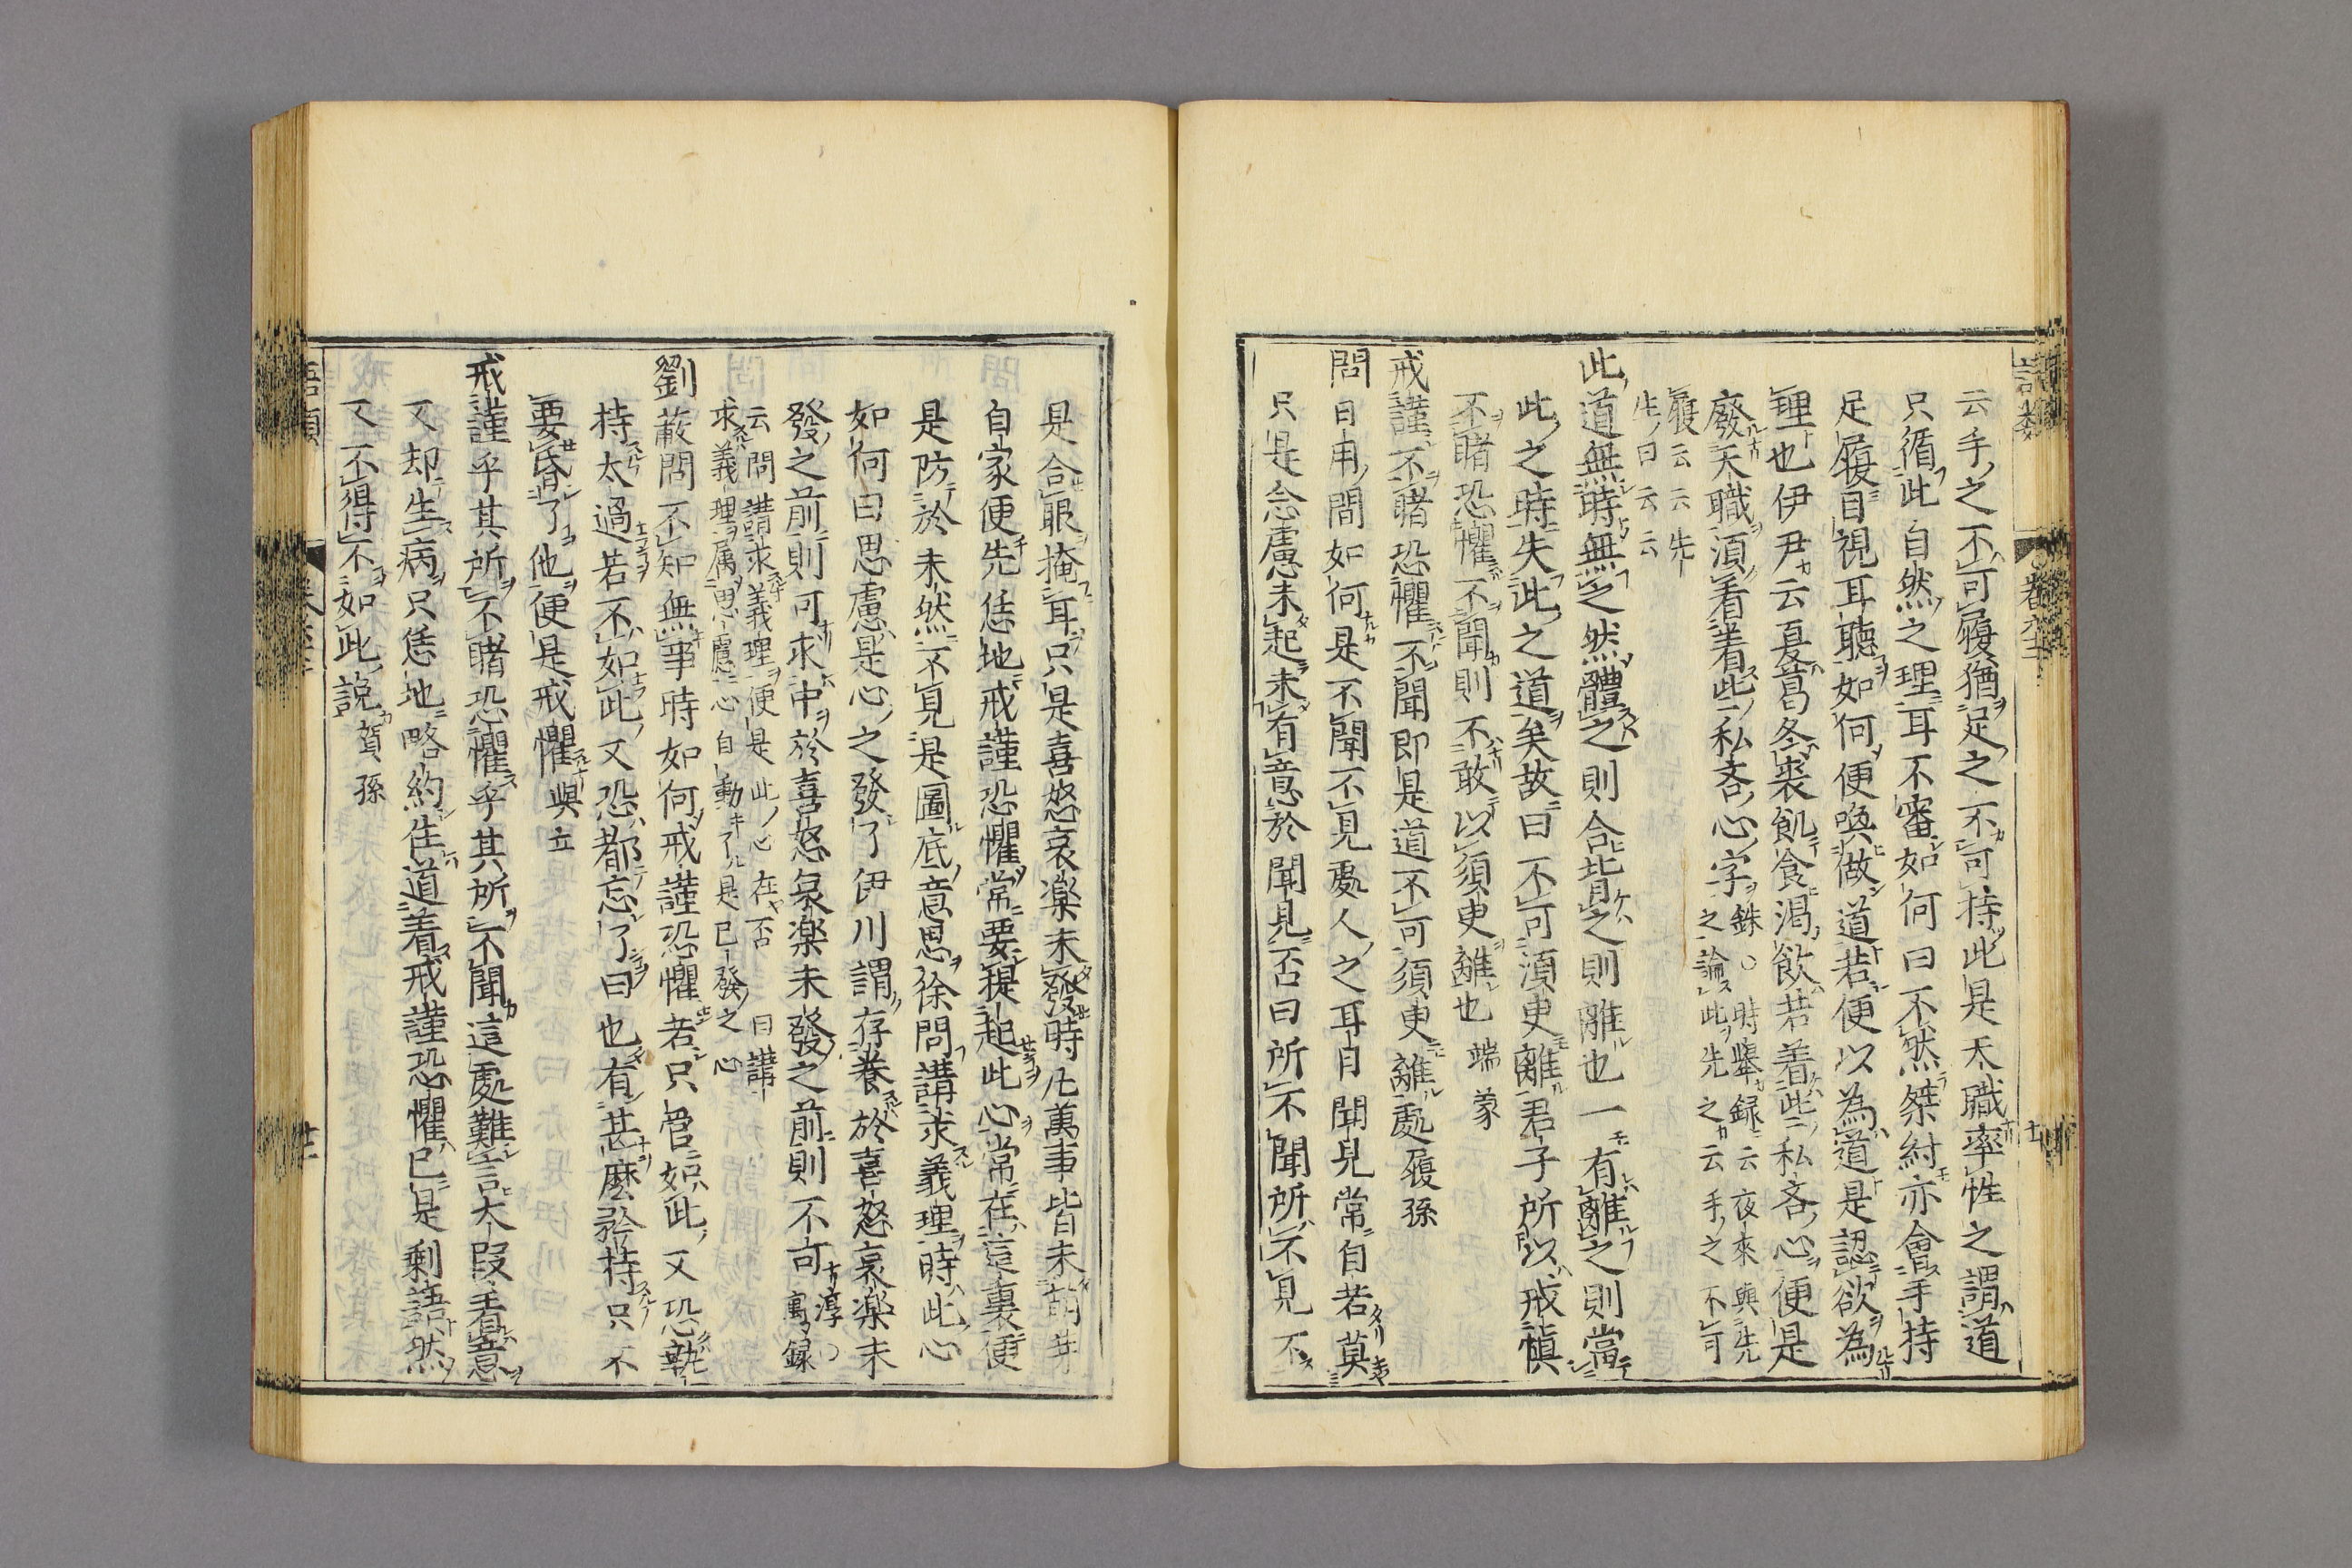 云手之不可履猶足之不可持此是天職率性之謂道
只循此自然之理耳不審如何曰不然桀紂亦會手持
足履目視耳聽如何便喚做道若便以為道是認欲為
理也伊尹云夏葛冬裘飢食渴飲若着些私吝心便是
廢天職須着些私吝心字銖○時舉録云夜來與先
之論此先之云手之不可
履云云先
生曰云云
此道無時無之然體之則合背之則離也一有離之則當
此之時失此之道矣故曰不可須臾離君子所以戒慎
不睹恐懼不聞則不敢以須臾離也端蒙
戒謹不睹恐懼不聞即是道不可須臾離處履孫
問日用間如何是不聞不見處人之耳目聞見常自若莫
只是念慮未起未有意於聞見否曰所不聞所不見不
是合眼掩耳只是喜怒哀樂未發時凡萬事皆未萌芽
自家便先恁地戒謹恐懼常要提起此心常在這裏便
是防於未然不見是圖底意思徐問講求義理時此心
如何曰思慮是心之發了伊川謂存養於喜怒哀樂未
發之前則可求中於喜怒哀樂未發之前則不可淳○
寓録
云問講求義理便是此心在否曰講
求義理屬思慮心自動了是已發之心
劉蔽問不知無事時如何戒謹恐懼若只管如此又恐執
持太過若不如此又恐都忘了曰也有甚麼矜持只不
要昏了他便是戒懼與立
戒謹乎其所不睹恐懼乎其所不聞這處難言大段著意
又却生病只恁地略約住道着戒謹恐懼已是剩語然
又不得不如此說賀孫